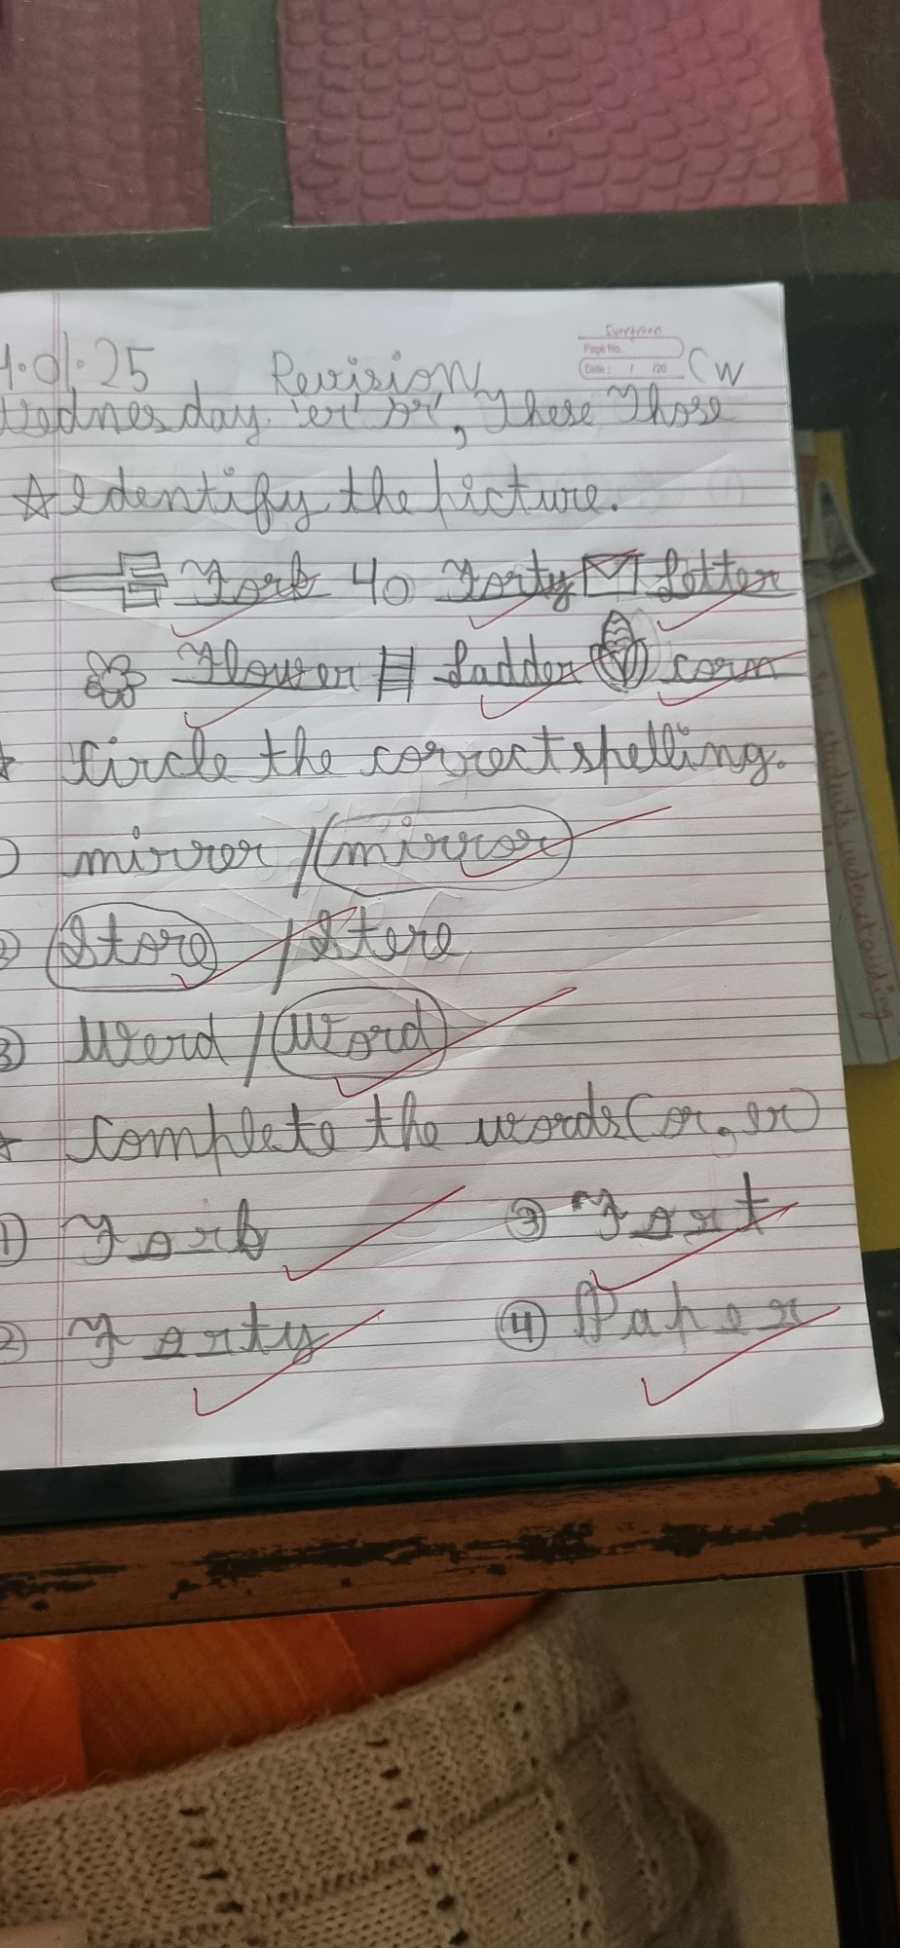 1.01.25 Revision CW
Evergreen
Page No.
Date: / /20
Wednesday. 'er' 'or', These Those
☆ Identify the picture.
Fork 40 Forty Letter
Flower Ladder corn
Circle the correct spelling.
mirrer / mirror
② Store / Stere
③ Werd / Word
Complete the words (or, er)
① Fork ③ Fort
② Forty ④ Paper
student's understanding